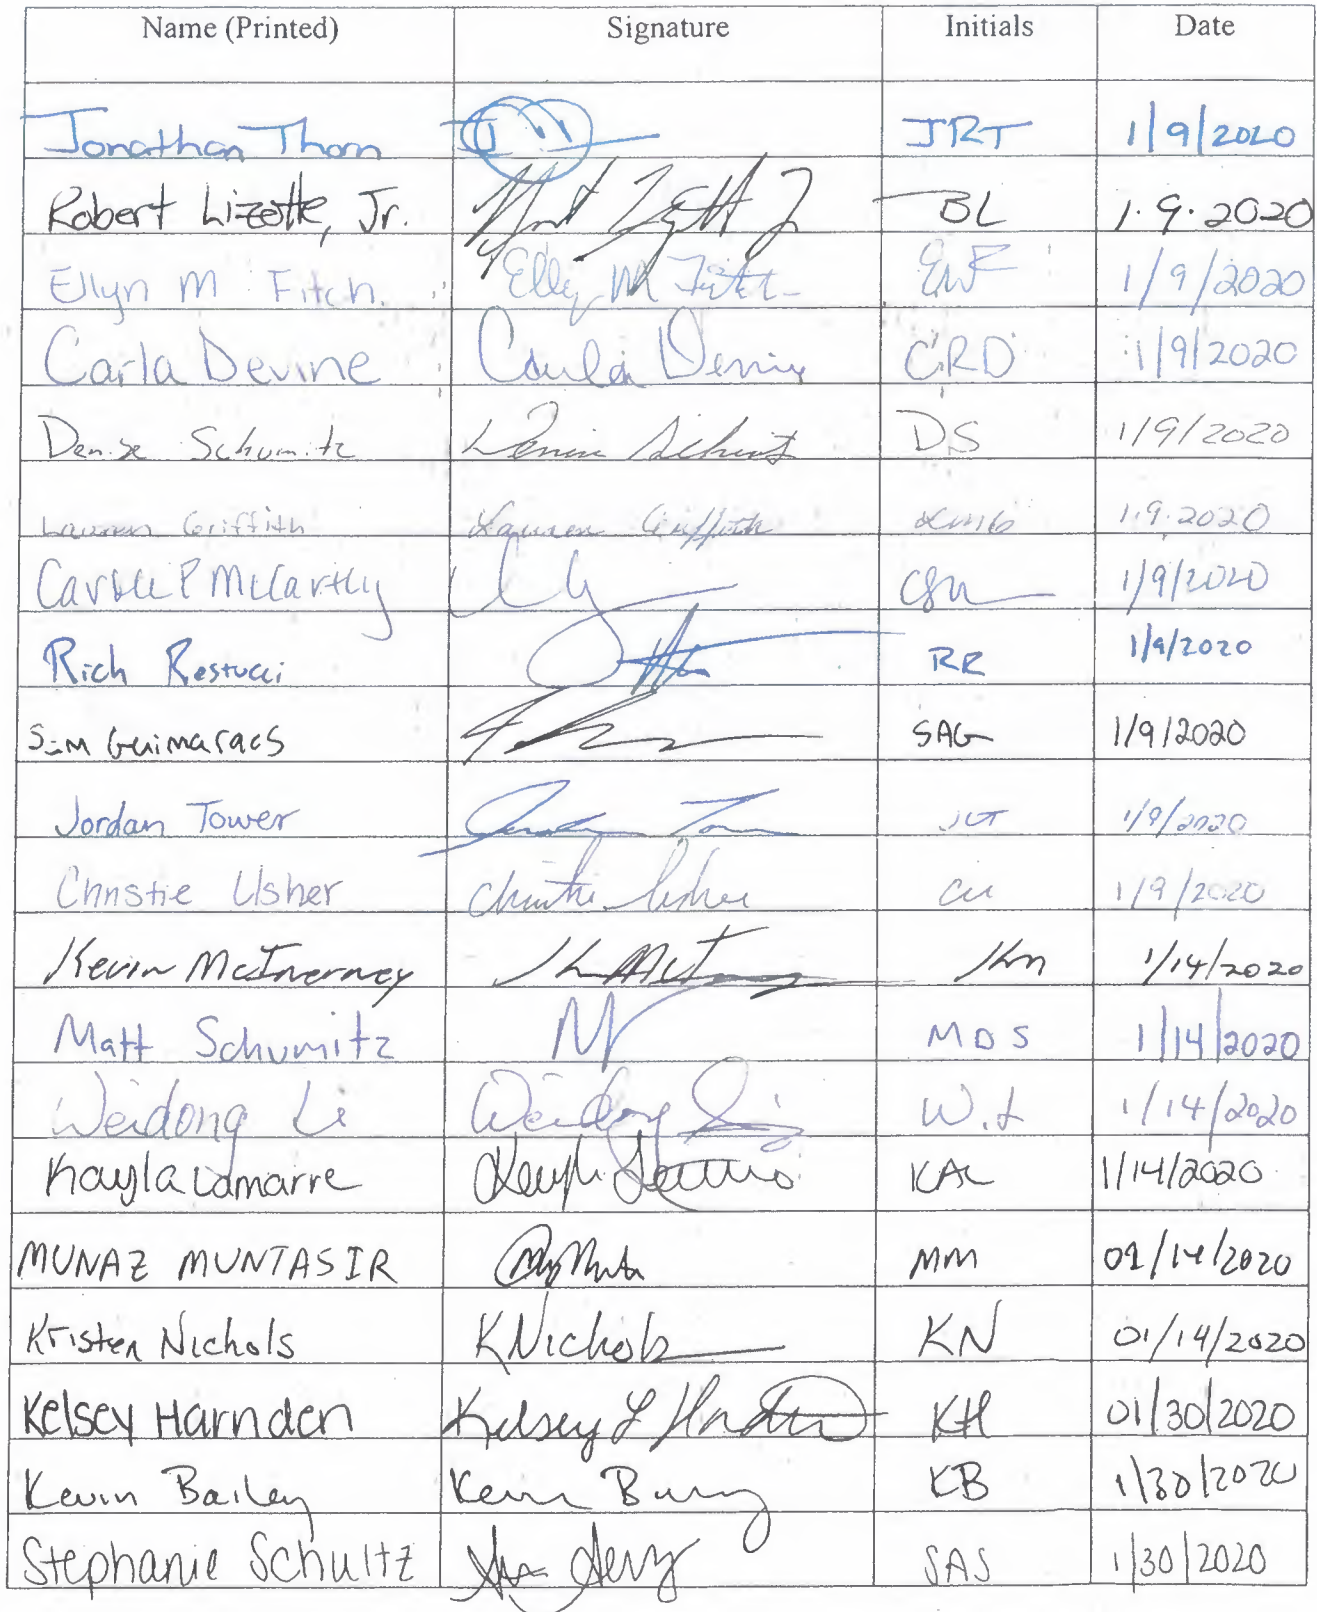 Name (Printed) Signature Initials Date
Jonathan Thorn JRT 1/9/2020
Robert Lizotte, Jr. BL 1.9.2020
Ellyn M Fitch Ellyn M Fitch EMF 1/9/2020
Carla Devine Carla Devine CRD 1/9/2020
Denise Schumitz Denise Schumitz DS 1/9/2020
Lauren Griffith Lauren Griffith LMG 1.9.2020
McCarthy 1/9/2020
Rich Restucci RR 1/9/2020
Sam Guimaraes SAG 1/9/2020
Jordan Tower Jordan Tower JCT 1/9/2020
Christie Usher Christie Usher CU 1/9/2020
Kevin McInerney KM 1/14/2020
Matt Schumitz MDS 1/14/2020
Weidong Li Weidong Li W.L 1/14/2020
Kayla Lamarre Kayla Lamarre KAL 1/14/2020
MUNAZ MUNTASIR MM 01/14/2020
Kristen Nichols KNichols KN 01/14/2020
Kelsey Harnden Kelsey L Harnden KH 01/30/2020
Kevin Bailey Kevin KB 1/30/2020
Stephanie Schultz SAS 1/30/2020